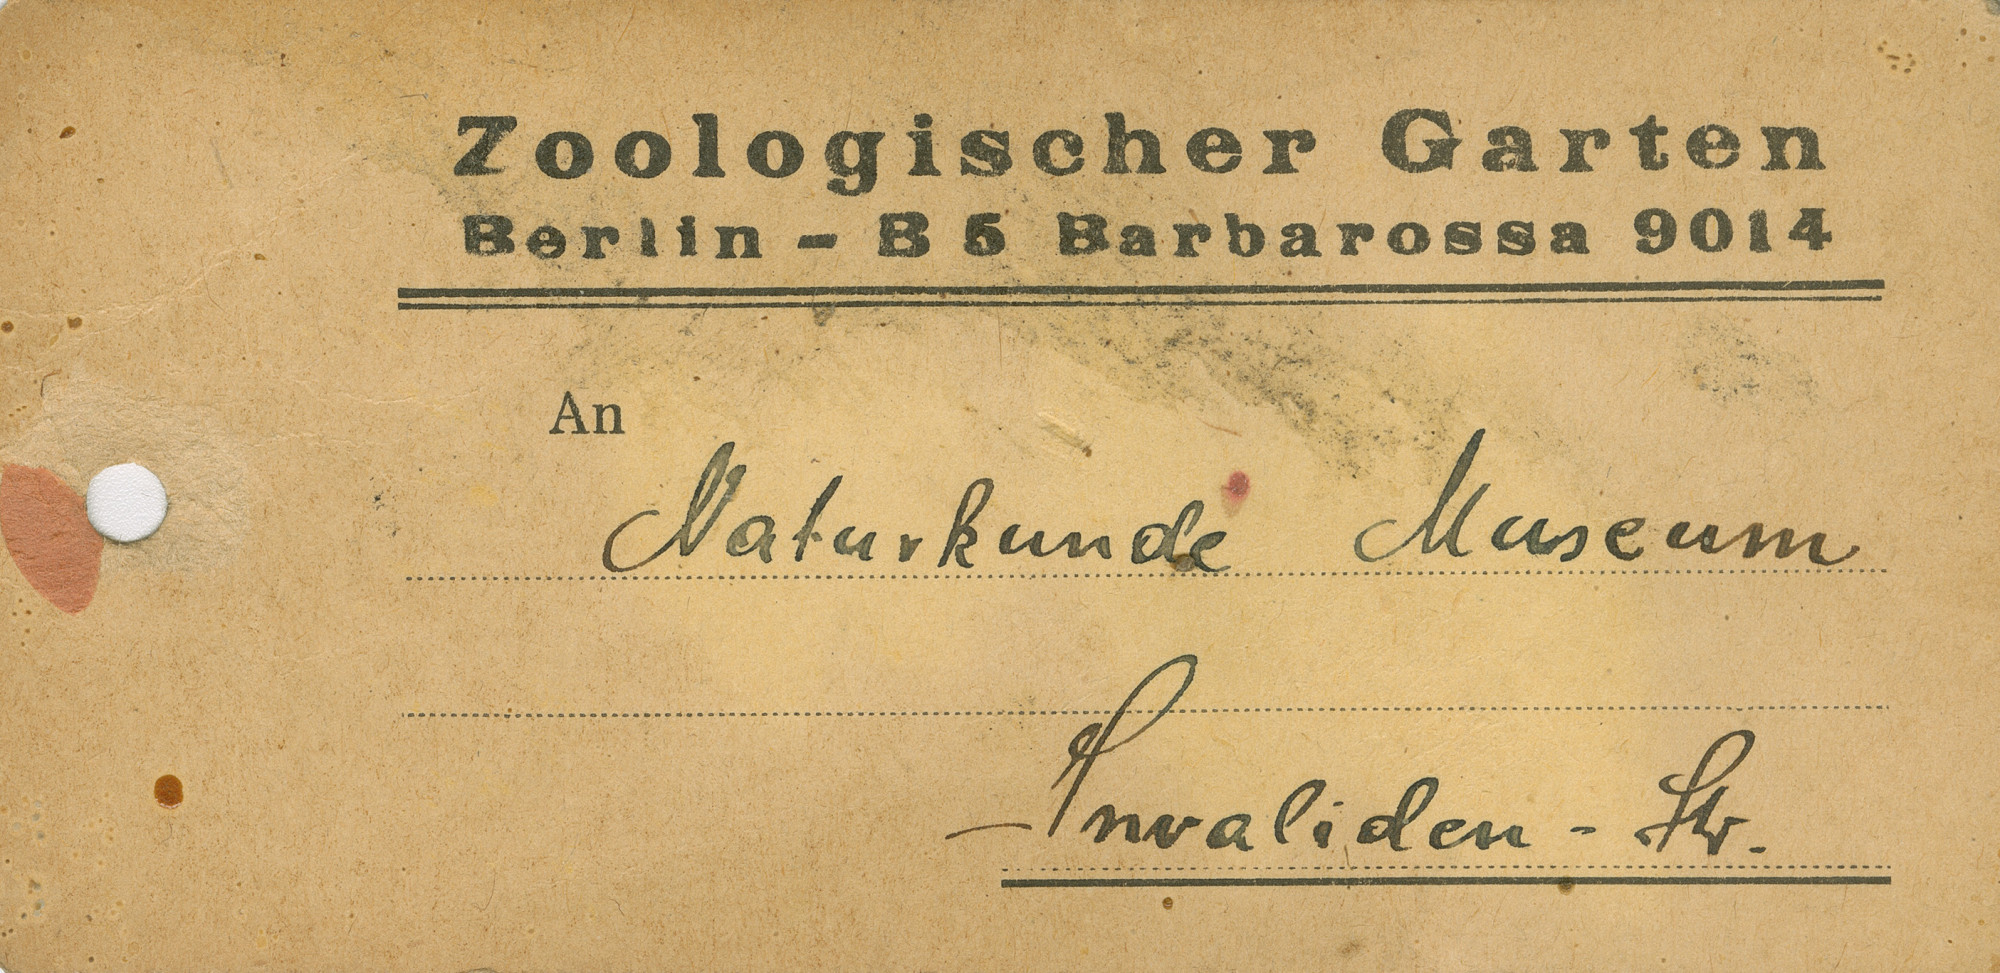 Zoologischer Garten
Berlin – B 5 Barbarossa 9014
An
Naturkunde Museum
Invaliden - Str.